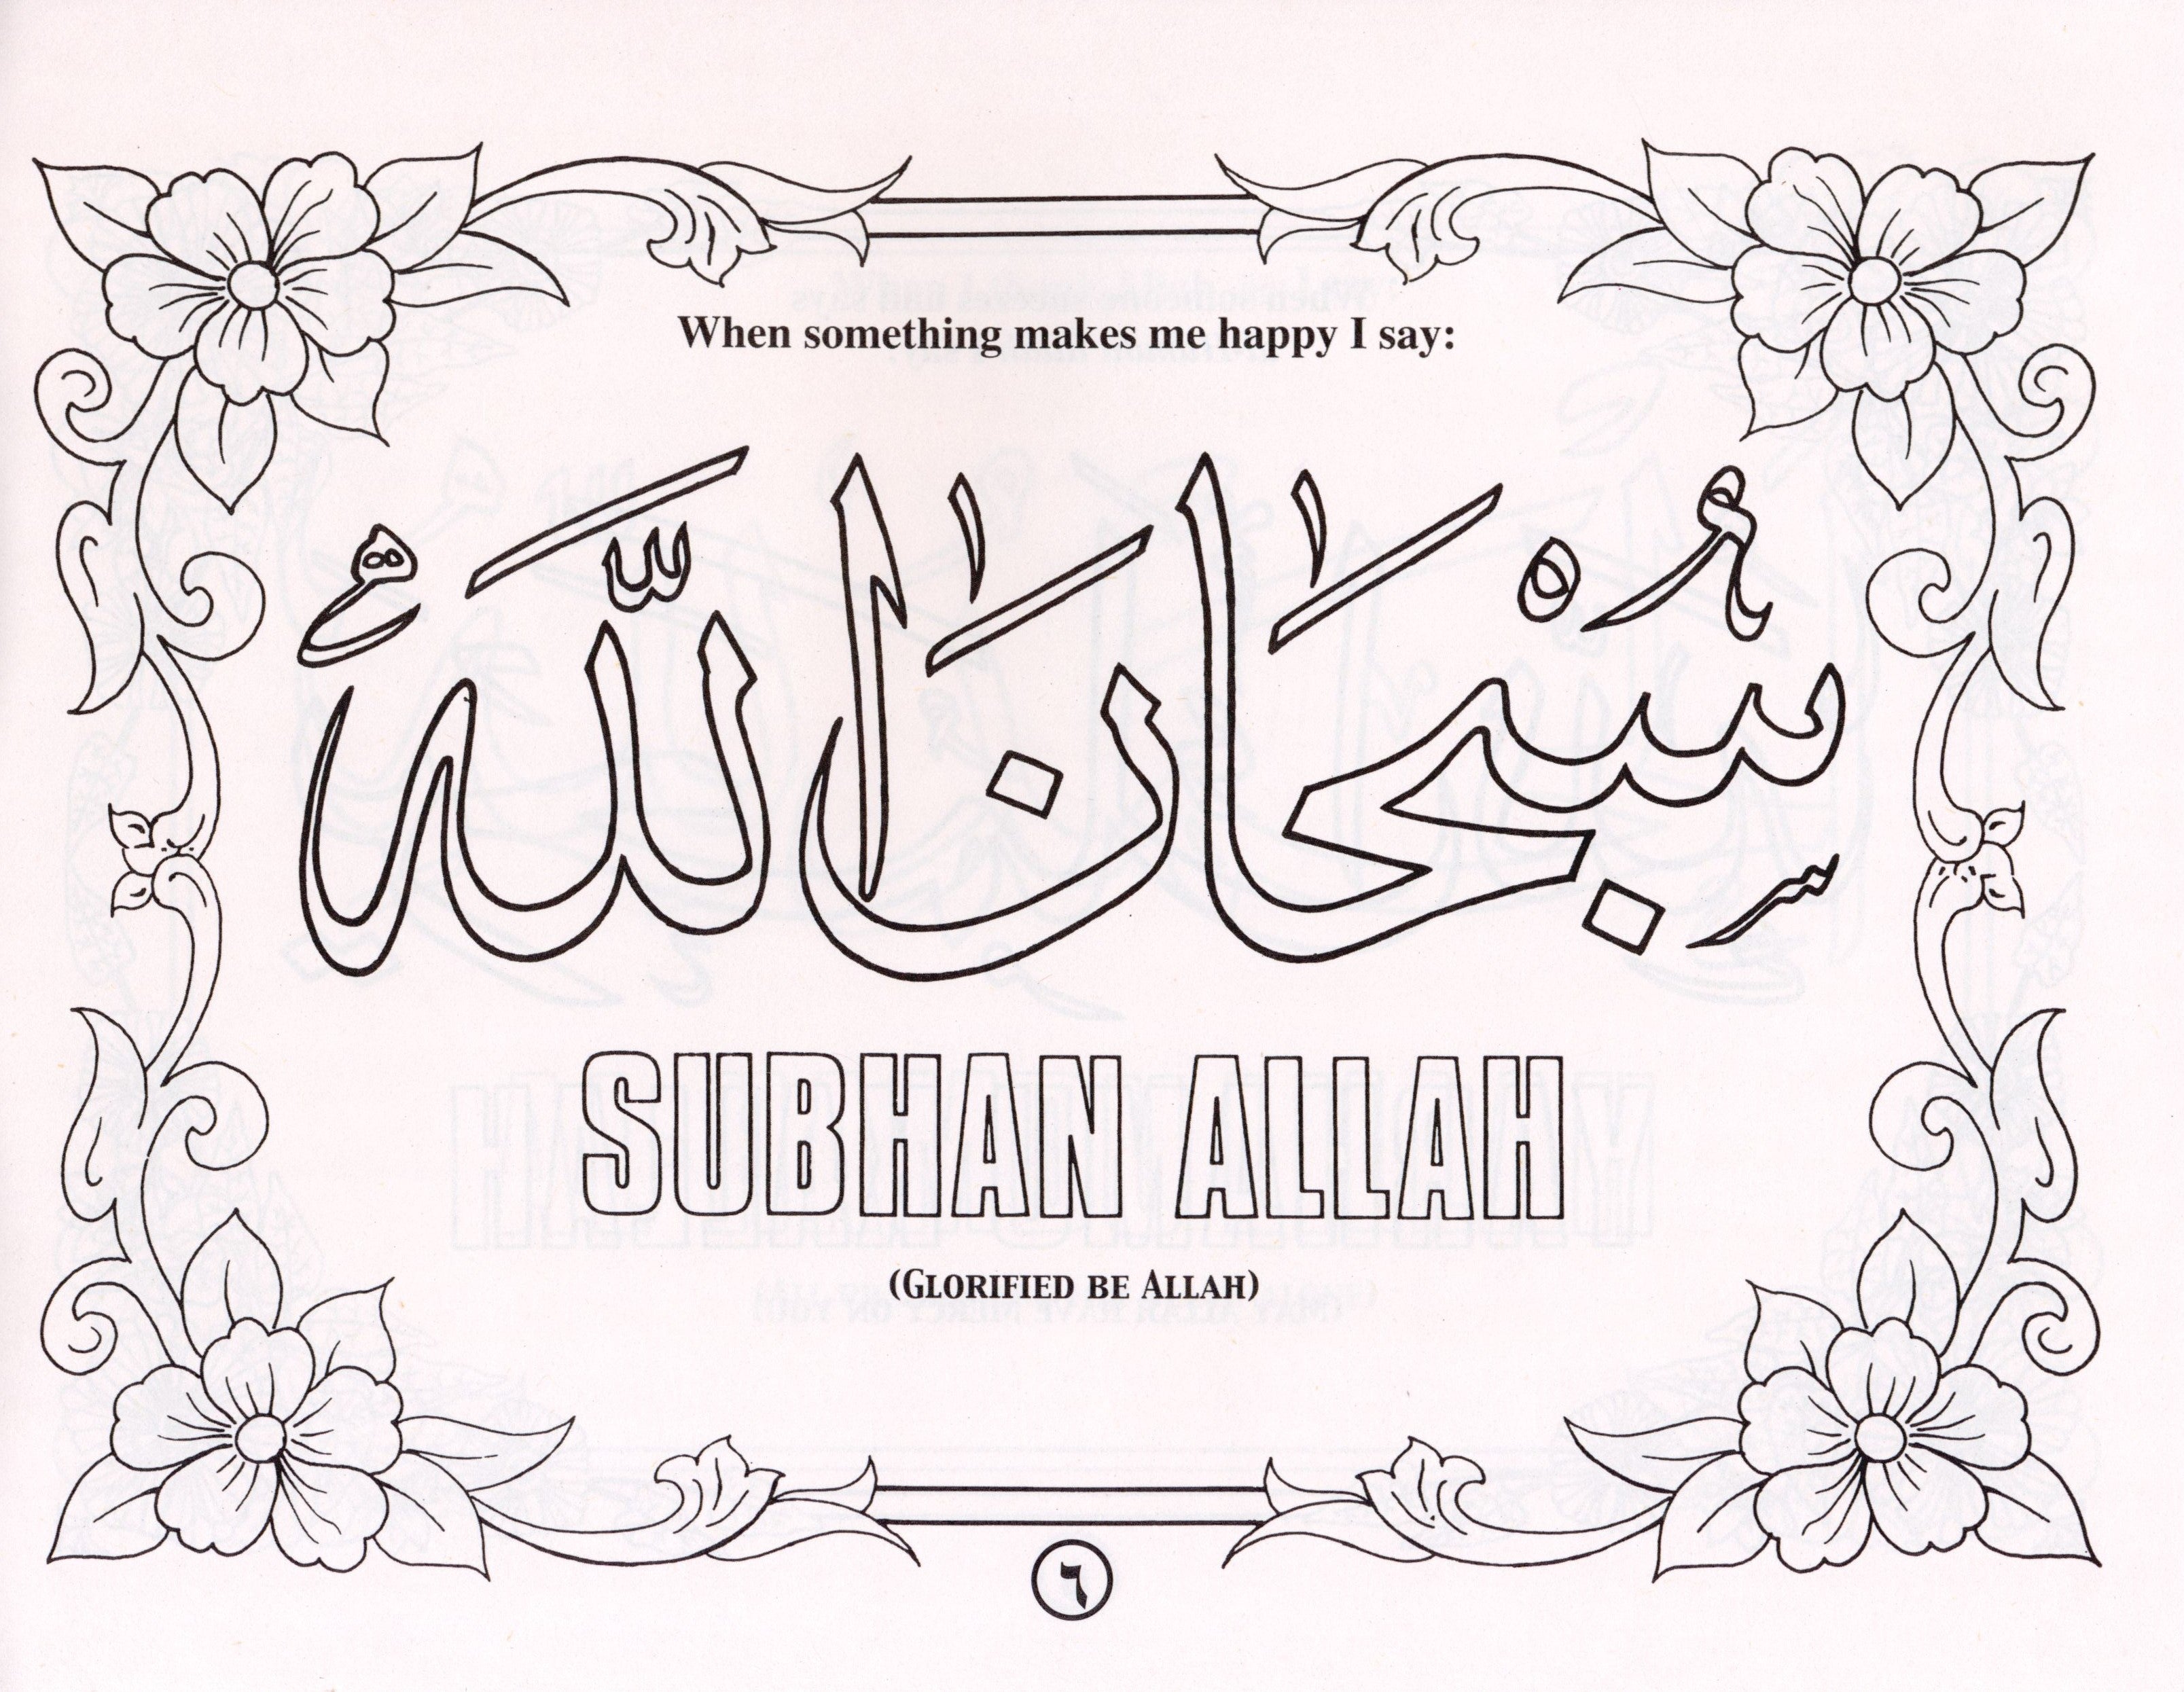 When something makes me happy I say:
سُبْحَانَ اللَّهُ
SUBHAN ALLAH
(GLORIFIED BE ALLAH)
٦